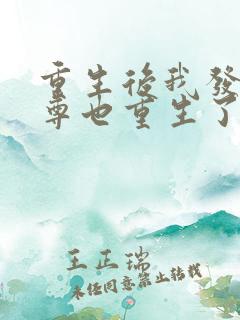 重生後我發
尊也重生了
王正瑞
未经同意禁止转载